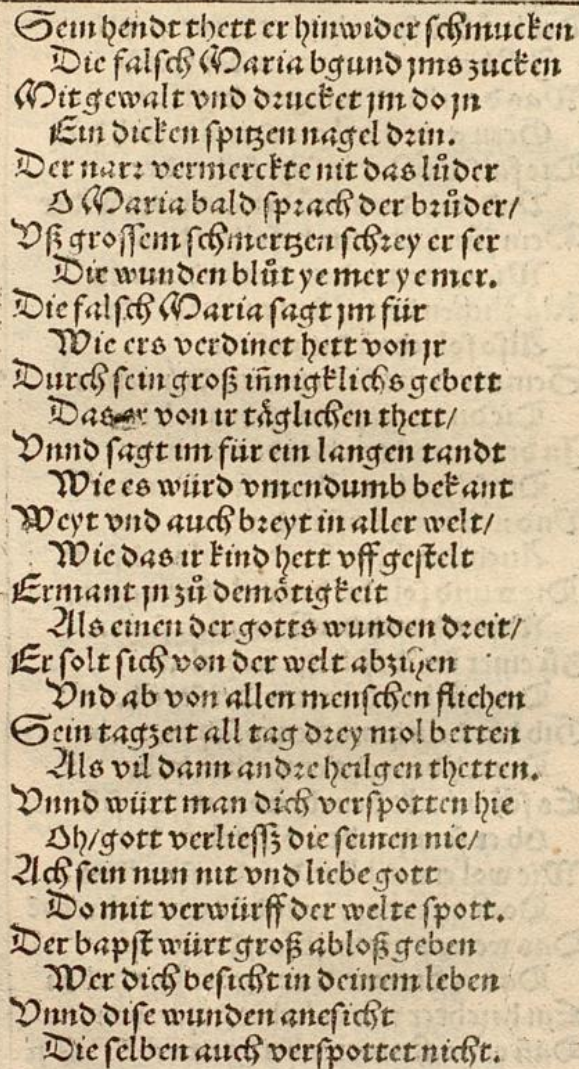 Sein hendt thett er hinwider schmucken
Die falsch Maria bgund jms zucken
Mit gewalt vnd drucket jm do jn
Ein dicken spitzen nagel drin.
Der narr vermerckte nit das lůder
O Maria bald sprach der brůder/
Vß grossem schmertzen schrey er ser
Die wunden blůt ye mer ye mer.
Die falsch Maria sagt jm für
Wie ers verdinet hett von jr
Durch sein groß iñnigklichs gebett
Das er von ir täglichen thett/
Vnnd sagt im für ein langen tandt
Wie es würd vmendumb bekant
Weyt vnd auch breyt in aller welt/
Wie das ir kind hett vff gestelt
Ermant jn zů demötigkeit
Als einen der gotts wunden dreit/
Er solt sich von der welt abzihen
Vnd ab von allen menschen fliehen
Sein tagzeit all tag drey mol betten
Als vil dann andre heilgen thetten.
Vnnd würt man dich verspotten hie
Oh/gott verliessz die seinen nie/
Ach sein nun nit vnd liebe gott
Do mit verwürff der welte spott.
Der bapst würt groß abloß geben
Wer dich besicht in deinem leben
Vnnd dise wunden anesicht
Die selben auch verspottet nicht.